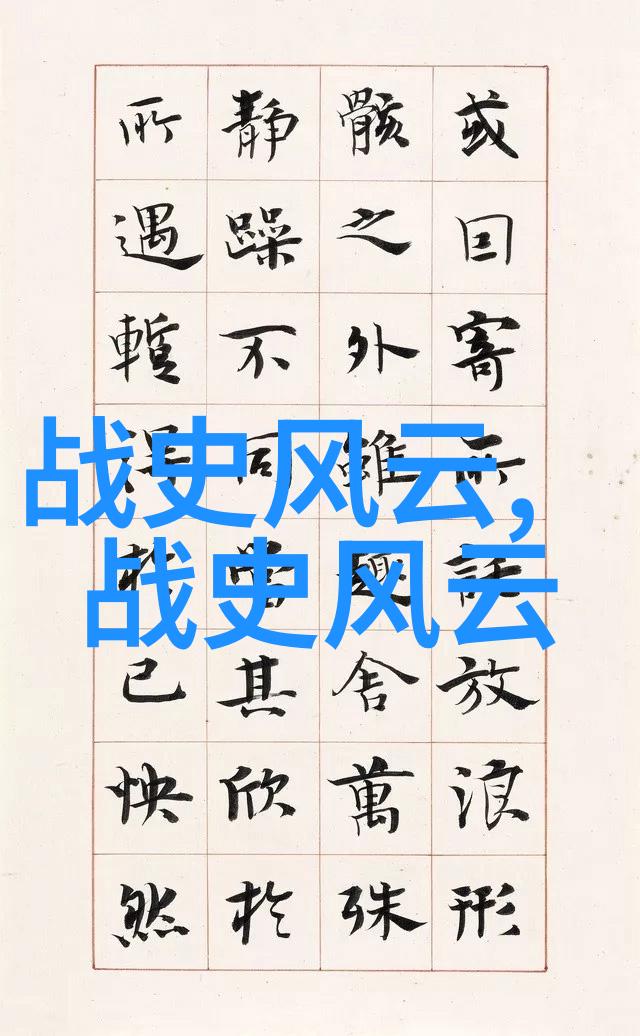 或囙寄所託放浪形
骸之外雖趣舍萬殊
靜躁不同當其欣於
所遇暫得於己怏然
战史风云,
战史风云